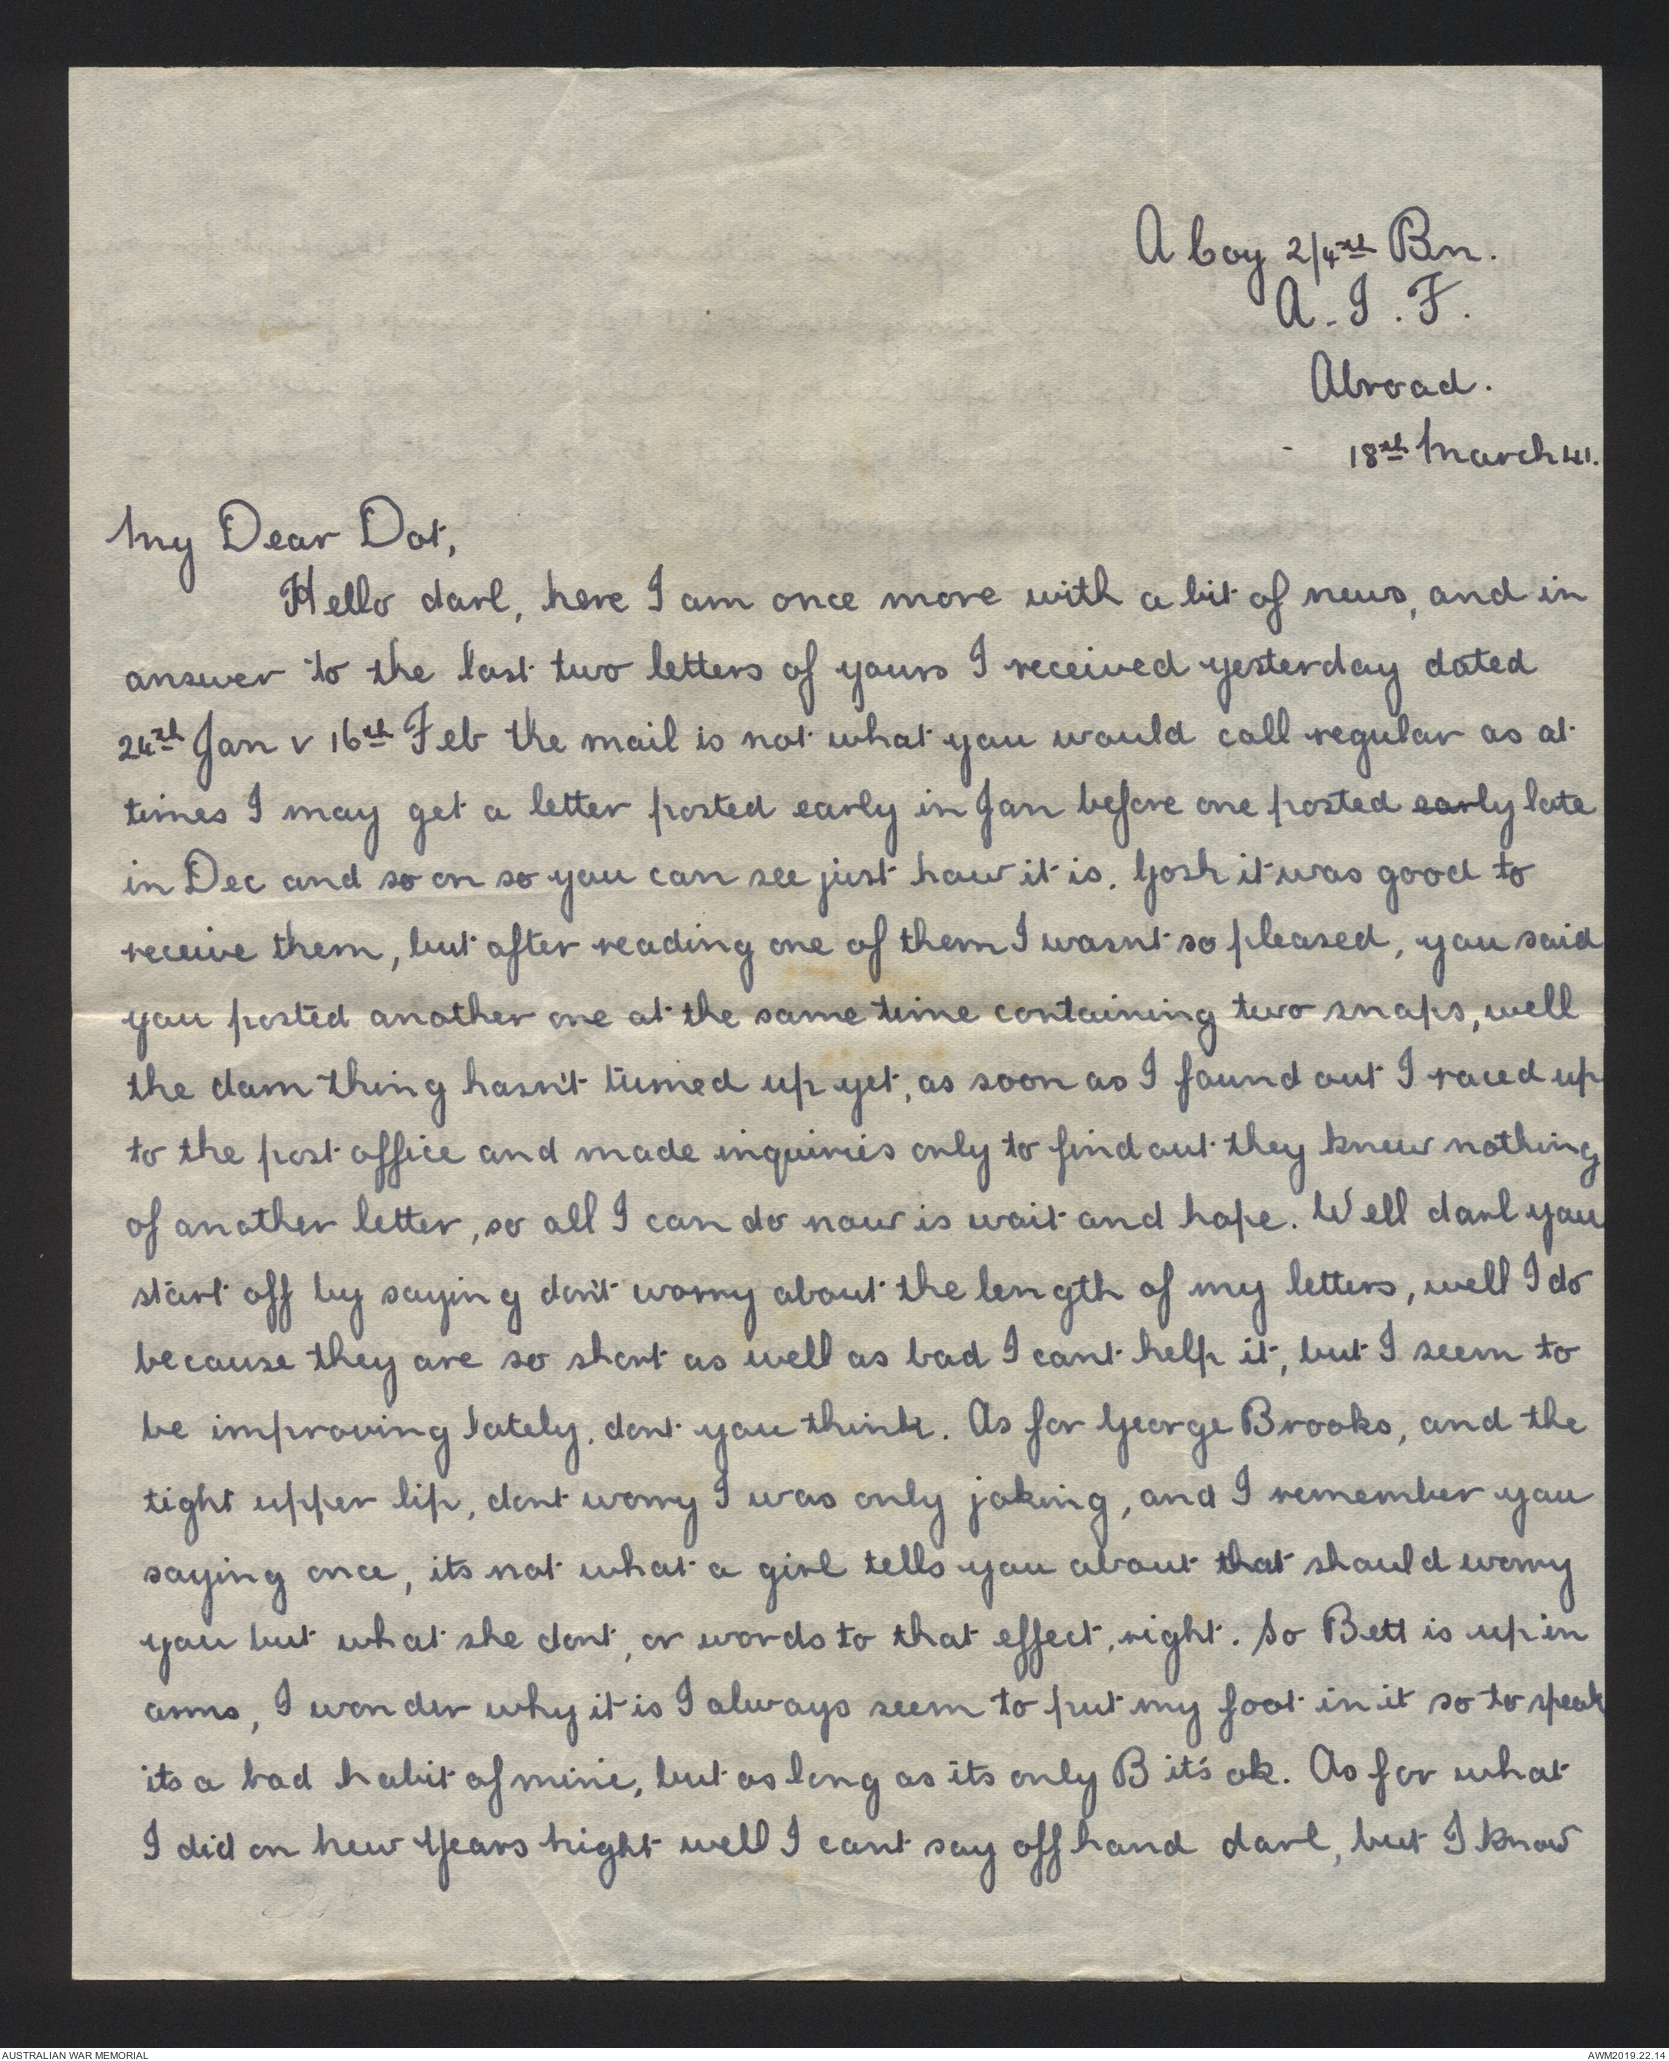 A Coy 2/4th Bn.
A. I. F.
Abroad.
18th March 41.
My Dear Dot,
Hello darl, here I am once more with a bit of news, and in
answer to the last two letters of yours I received yesterday dated
24th Jan & 16th Feb the mail is not what you would call regular as at
times I may get a letter posted early in Jan before one posted early late
in Dec and so on so you can see just how it is. Gosh it was good to
receive them, but after reading one of them I wasn't so pleased, you said
you posted another one at the same time containing two snaps, well
the dam thing hasn't turned up yet, as soon as I found out I raced up
to the post office and made inquiries only to find out they knew nothing
of another letter, so all I can do now is wait and hope. Well darl you
start off by saying don't worry about the length of my letters, well I do
because they are so short as well as bad I cant help it, but I seem to
be improving lately, dont you think. As for George Brooks, and the
tight upper lip, dont worry I was only joking, and I remember you
saying once, its not what a girl tells you about that should worry
you but what she dont, or words to that effect, right. So Bett is up in
arms, I wonder why it is I always seem to put my foot in it so to speak
its a bad habit of mine, but as long as its only B it's ok. As for what
I did on New Years night well I cant say off hand darl, but I know
AUSTRALIAN WAR MEMORIAL
AWM2019.22.14